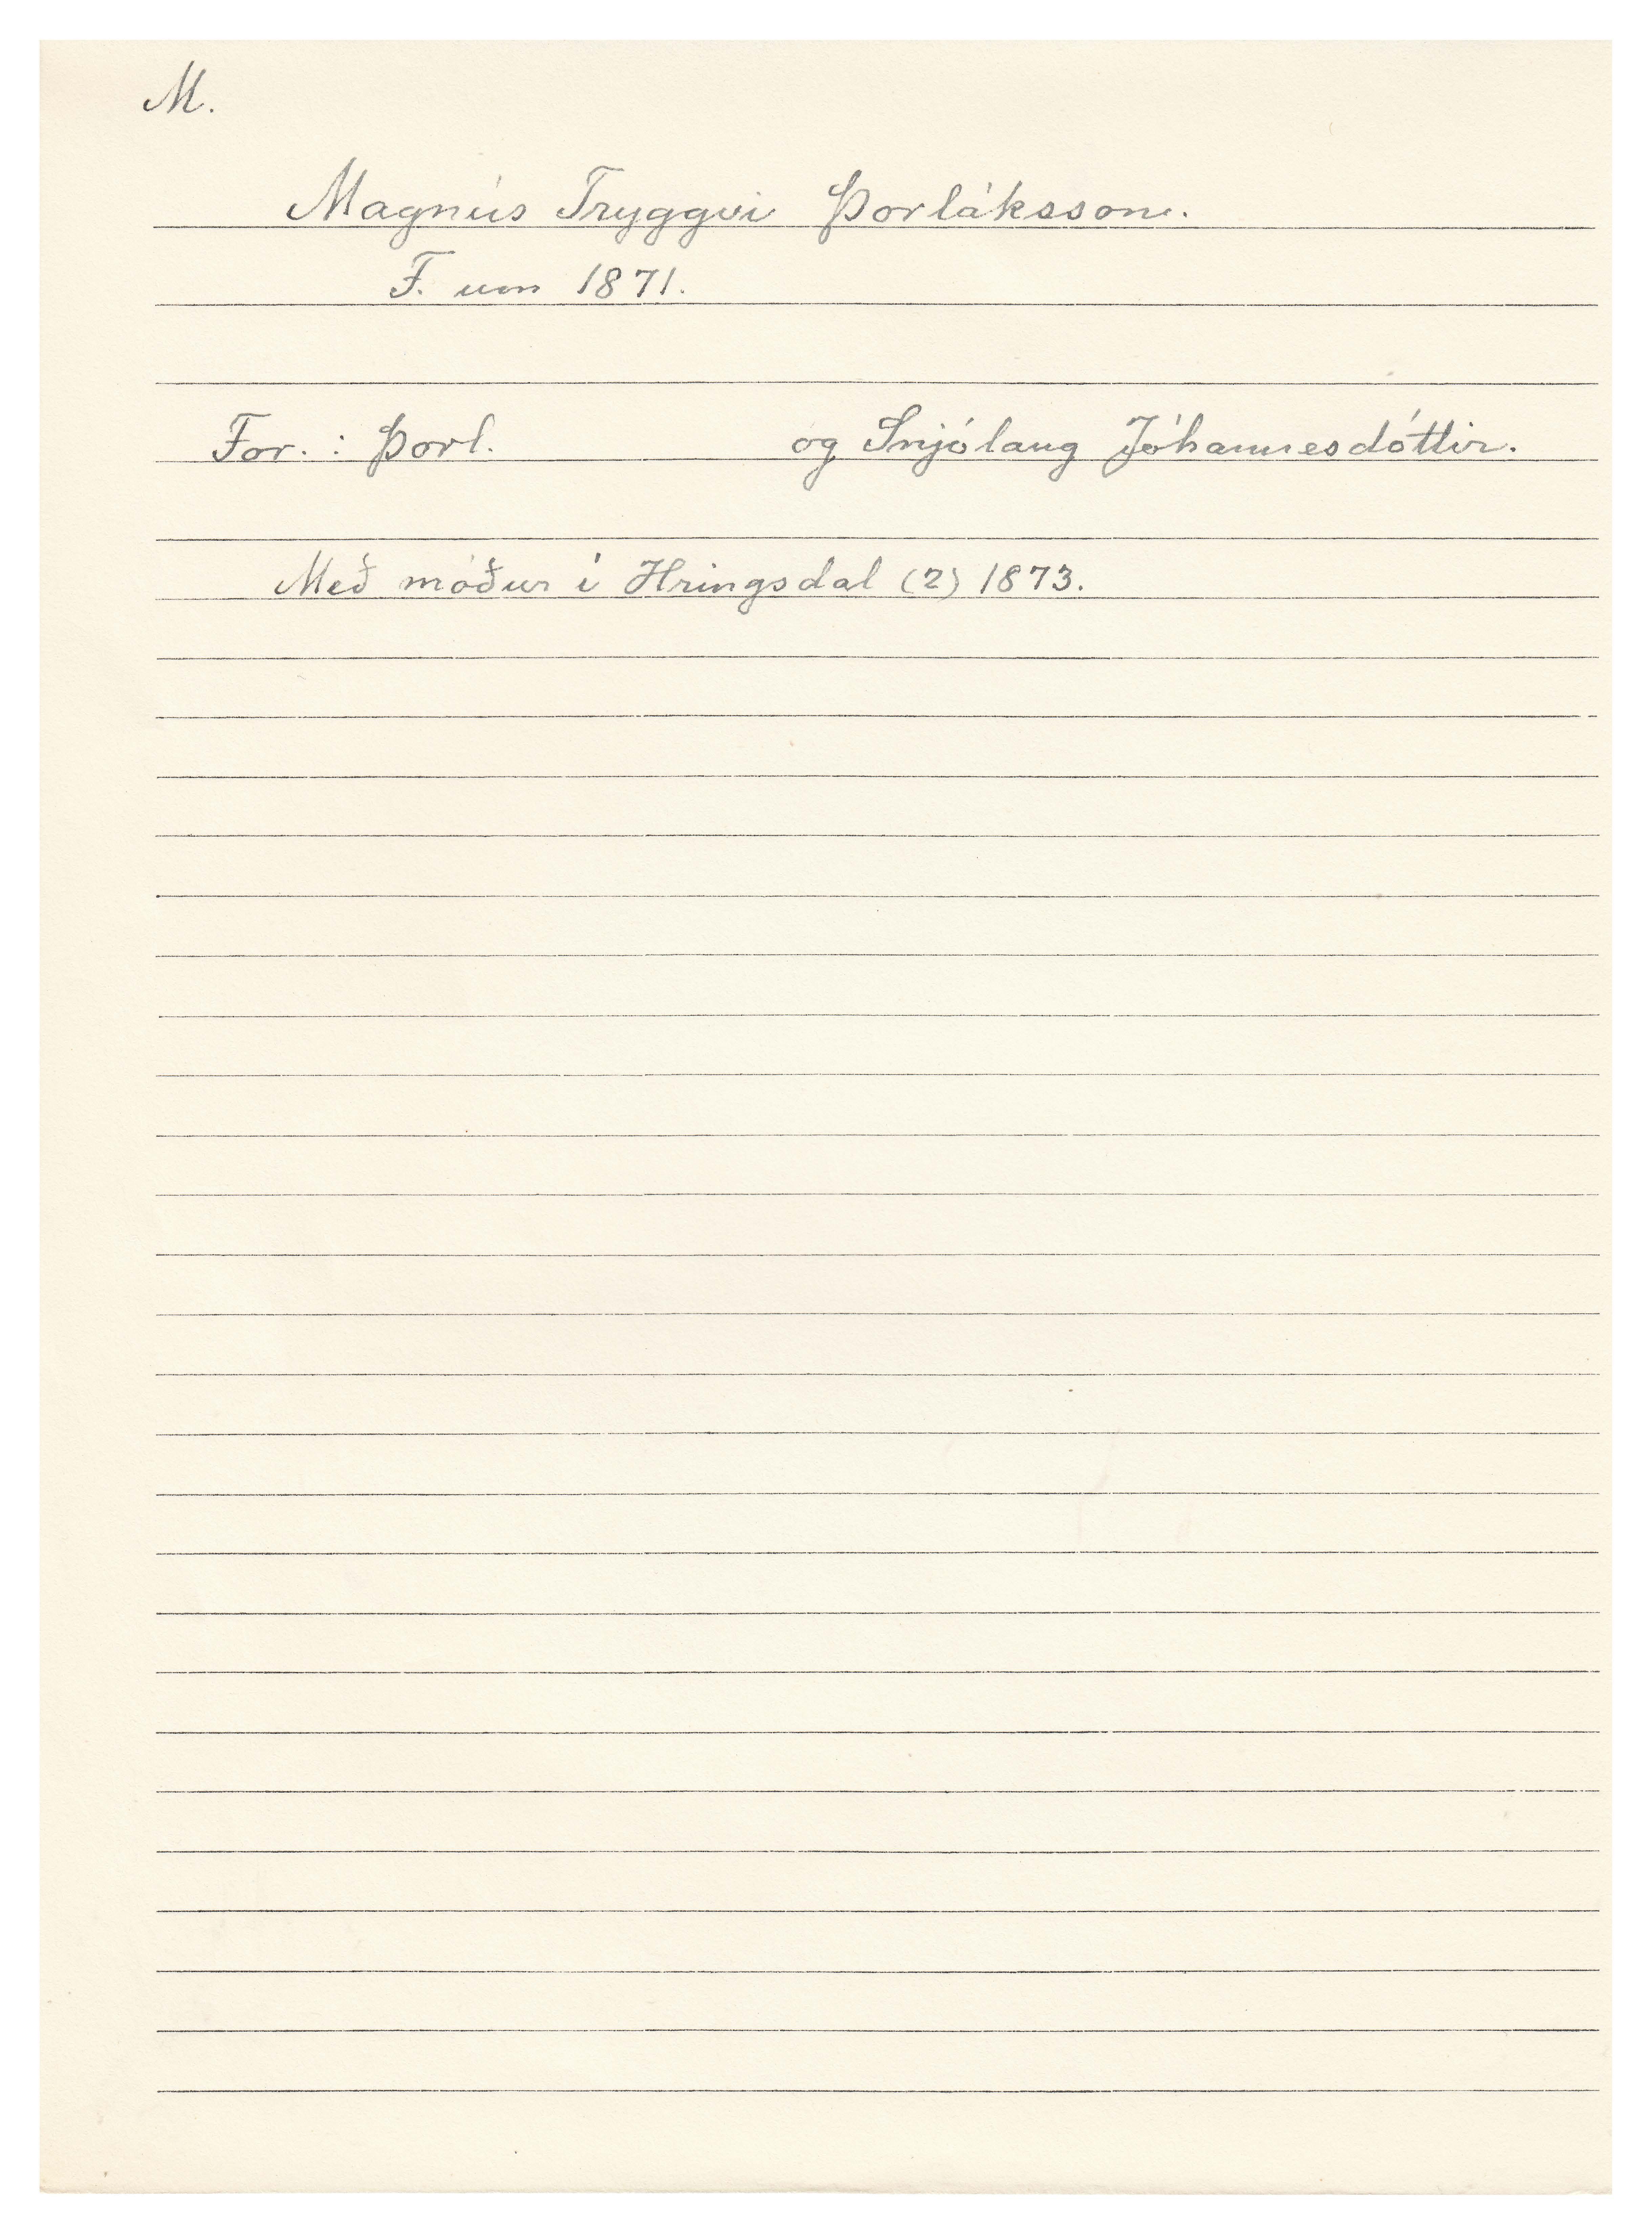 M.
Magnús Tryggvi Þorláksson.
F. um 1871.
For. : Þorl. og Snjólaug Jóhannesdóttir.
Með móður í Hringsdal (2) 1873.